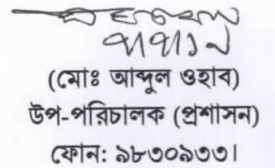 (মোঃ আব্দুল ওহাব)
উপ-পরিচালক (প্রশাসন)
ফোন: ৯৮৩০৯৩৩।